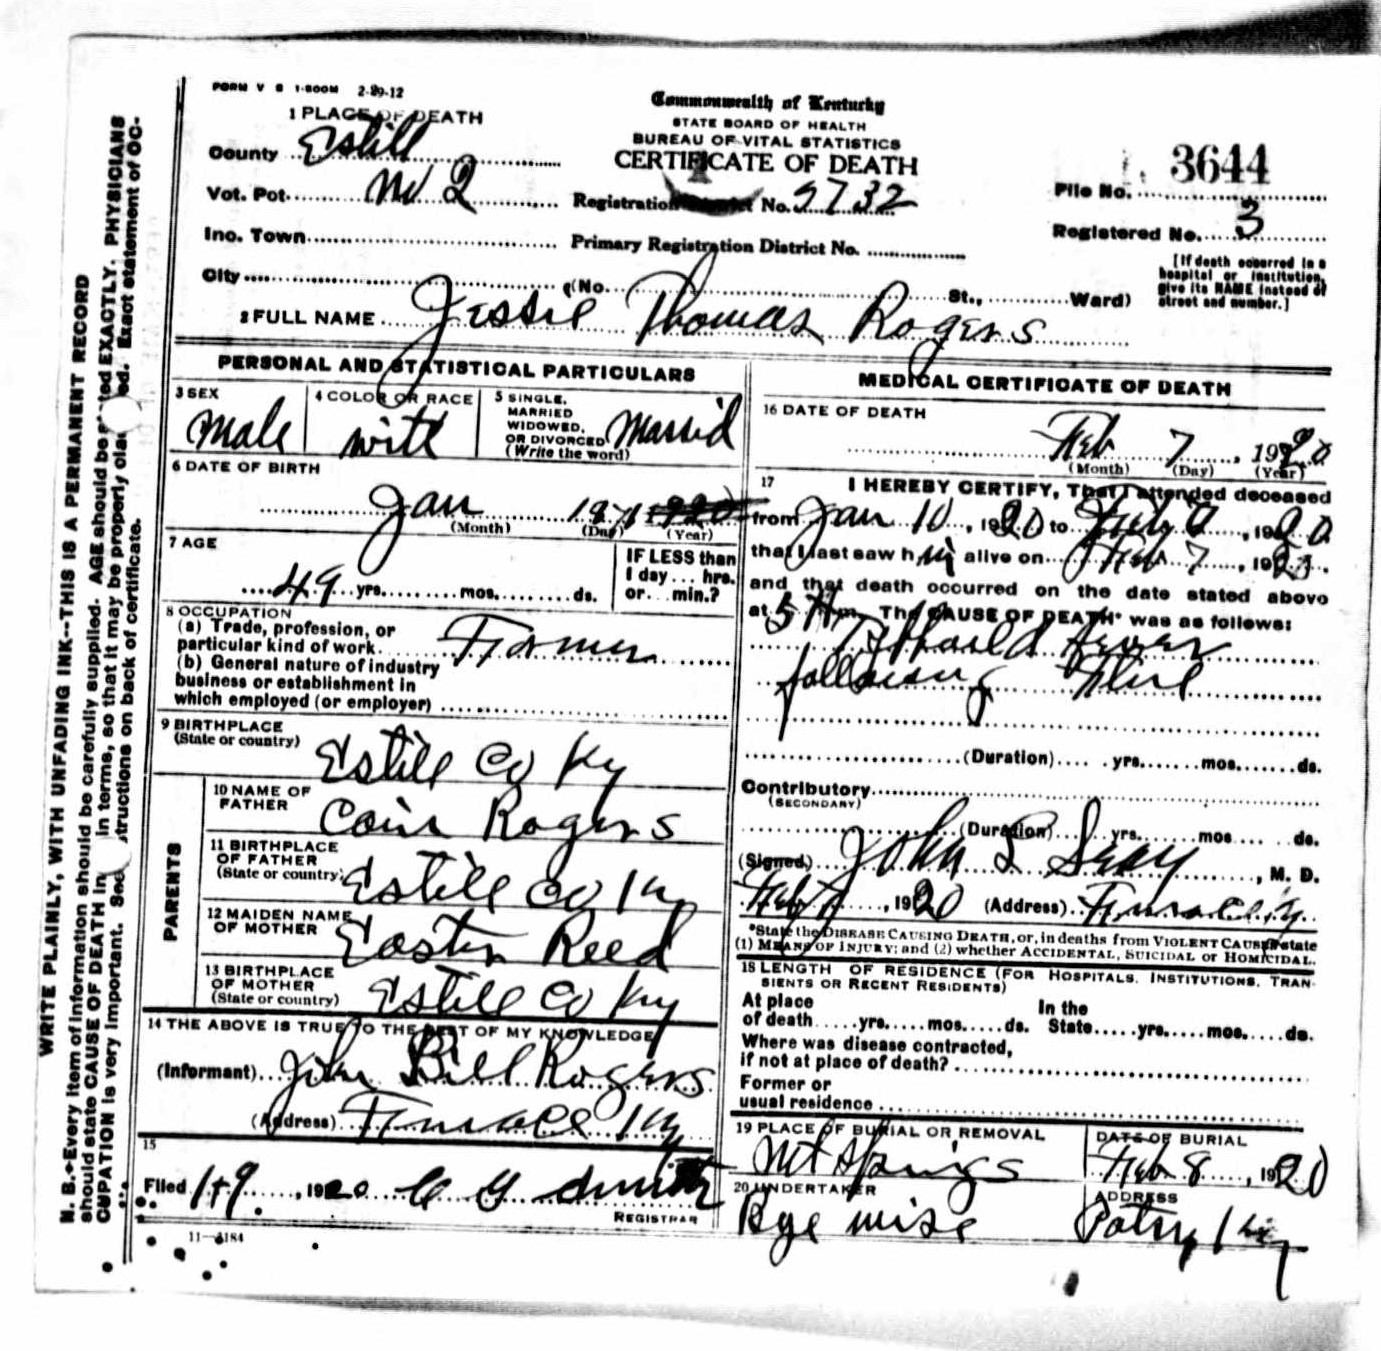 FORM V S 1-500M 2-29-12
Commonwealth of Kentucky
STATE BOARD OF HEALTH
BUREAU OF VITAL STATISTICS
CERTIFICATE OF DEATH
1 PLACE OF DEATH
County Estill
Vot. Pct. No 2
Registration District No. 5732
File No. 3644
Registered No. 3
Inc. Town
Primary Registration District No.
City
(No. St., Ward)
[If death occurred in a
hospital or institution,
give its NAME instead of
street and number.]
2 FULL NAME Jessie Thomas Rogers
PERSONAL AND STATISTICAL PARTICULARS
3 SEX
Male
4 COLOR OR RACE
wite
5 SINGLE,
MARRIED
WIDOWED,
OR DIVORCED
(Write the word)
Married
6 DATE OF BIRTH
Jan 1871
(Month) (Day) (Year)
7 AGE
49 yrs. mos. ds.
IF LESS than
1 day... hrs.
or... min.?
8 OCCUPATION
(a) Trade, profession, or
particular kind of work. Farmer
(b) General nature of industry
business or establishment in
which employed (or employer)
9 BIRTHPLACE
(State or country)
Estill Co Ky
PARENTS
10 NAME OF
FATHER
Rogers
11 BIRTHPLACE
OF FATHER
(State or country)
Estill Co Ky
12 MAIDEN NAME
OF MOTHER
Easter Reed
13 BIRTHPLACE
OF MOTHER
(State or country)
Estill Co Ky
14 THE ABOVE IS TRUE TO THE BEST OF MY KNOWLEDGE
(Informant) John Bill Rogers
(Address) Furnace Ky
15
Filed 1920
REGISTRAR
MEDICAL CERTIFICATE OF DEATH
16 DATE OF DEATH
Feb 7, 1920
(Month) (Day) (Year)
17 I HEREBY CERTIFY, That I attended deceased
from Jan 10, 1920 to Feb 1920
that I last saw him alive on Feb 7, 192
and that death occurred on the date stated above
at 5 m. The CAUSE OF DEATH* was as follows:
Fever
following
(Duration) yrs. mos. ds.
Contributory
(SECONDARY)
(Duration) yrs. mos. ds.
(Signed) John , M. D.
Feb , 1920 (Address)
*State the DISEASE CAUSING DEATH, or, in deaths from VIOLENT CAUSES state
(1) MEANS OF INJURY; and (2) whether ACCIDENTAL, SUICIDAL or HOMICIDAL.
18 LENGTH OF RESIDENCE (FOR HOSPITALS, INSTITUTIONS, TRAN-
SIENTS OR RECENT RESIDENTS)
At place
of death yrs. mos. ds.
In the
State yrs. mos. ds.
Where was disease contracted,
if not at place of death?
Former or
usual residence
19 PLACE OF BURIAL OR REMOVAL
Mt Springs
DATE OF BURIAL
Feb 8, 1920
20 UNDERTAKER
wise
ADDRESS
Ky
WRITE PLAINLY, WITH UNFADING INK--THIS IS A PERMANENT RECORD
N. B.--Every item of information should be carefully supplied. AGE should be stated EXACTLY. PHYSICIANS
should state CAUSE OF DEATH in terms, so that it may be properly classified. Exact statement of OC-
CUPATION is very important. See instructions on back of certificate.